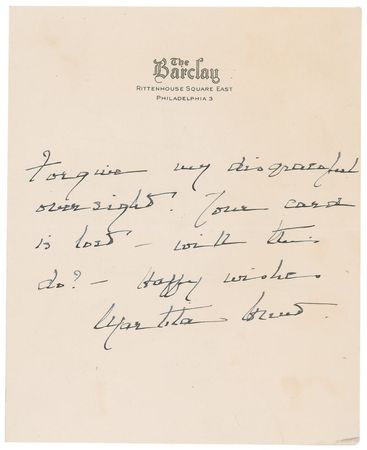 The
Barclay
RITTENHOUSE SQUARE EAST
PHILADELPHIA 3
Forgive my disgraceful
oversight. Your card
is lost – will this
do? – Happy wishes
Martita Hunt.